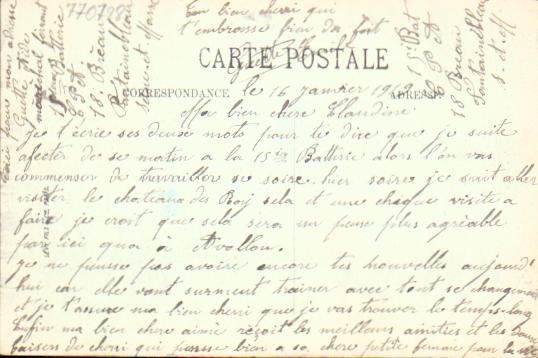 770728
ton bien cherri qui
t'embrasse bien da fort
CARTE POSTALE
CORRESPONDANCE
ADRESSE
le 16 janvier 19
Ma bien chere Claudine
Je t'écrie ses deux mots pour te dire que je suite
afecter de se matin a la 15 ier Batterie alors l'on vas
commenser de travailler se soire. hier soire je suit aller
visiter le chateaux des Roy sela et une chique visite a
faire je croit que selà sera un peux plus agréable
par ici qua à Avallon.
Je ne pensse pas avoire encore tes nouvelles aujourd'
hui car elle vont surment trainer avec tout se changement
et je t'assure ma bien cherri que je vas trouver le temps long
Enfin ma bien chere aimie reçoit les meilleurs amities et les bons
baisers de cherri qui pensse bien a sa chere petite femme pour la vie
voici pour mon adresse
Guitte
maréchal ferrant
15 Batterie
6 P A
18 Bréau
Fontainebleau
Seine-et-Marne
15 Bat
6 P A
18 Bréau
Fontainebleau
S.-et-M